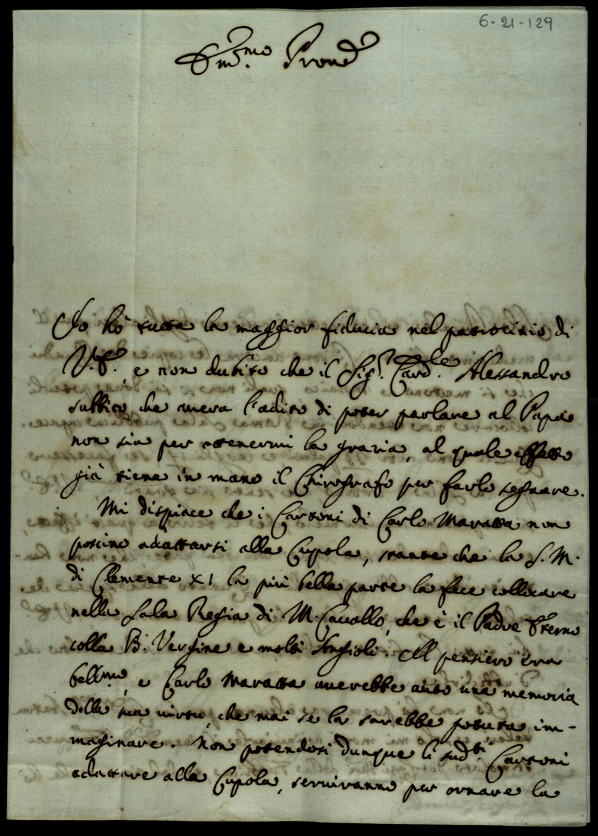 6-21-129
Em.mo Prone
Io hò tutta la maggior fiducia nel patrocinio di
V.E., e non dubito che il Sig.r Card.le Alessandro
subbito che averà l'adito di poter parlare al Papa
non sia per ottenermi la grazia, al quale effetto
già tiene in mano il Chirografo per farlo segnare.
Mi dispiace che i Cartoni di Carlo Maratta non
possino adattarsi alla Cupola, stante che la S. M.
di Clemente XI la più bella parte la fece collocare
nella Sala Regia di M. Cavallo, che è il Padre Eterno
colla B. Vergine e molti Angioli. Il pensiero era
bell.mo, e Carlo Maratta averebbe auto una memoria
della sua virtù, che mai se la sarebbe potuta im-
maginare. Non potendosi dunque li sud.ti Cartoni
adattare alla Cupola, serviranno per ornare la